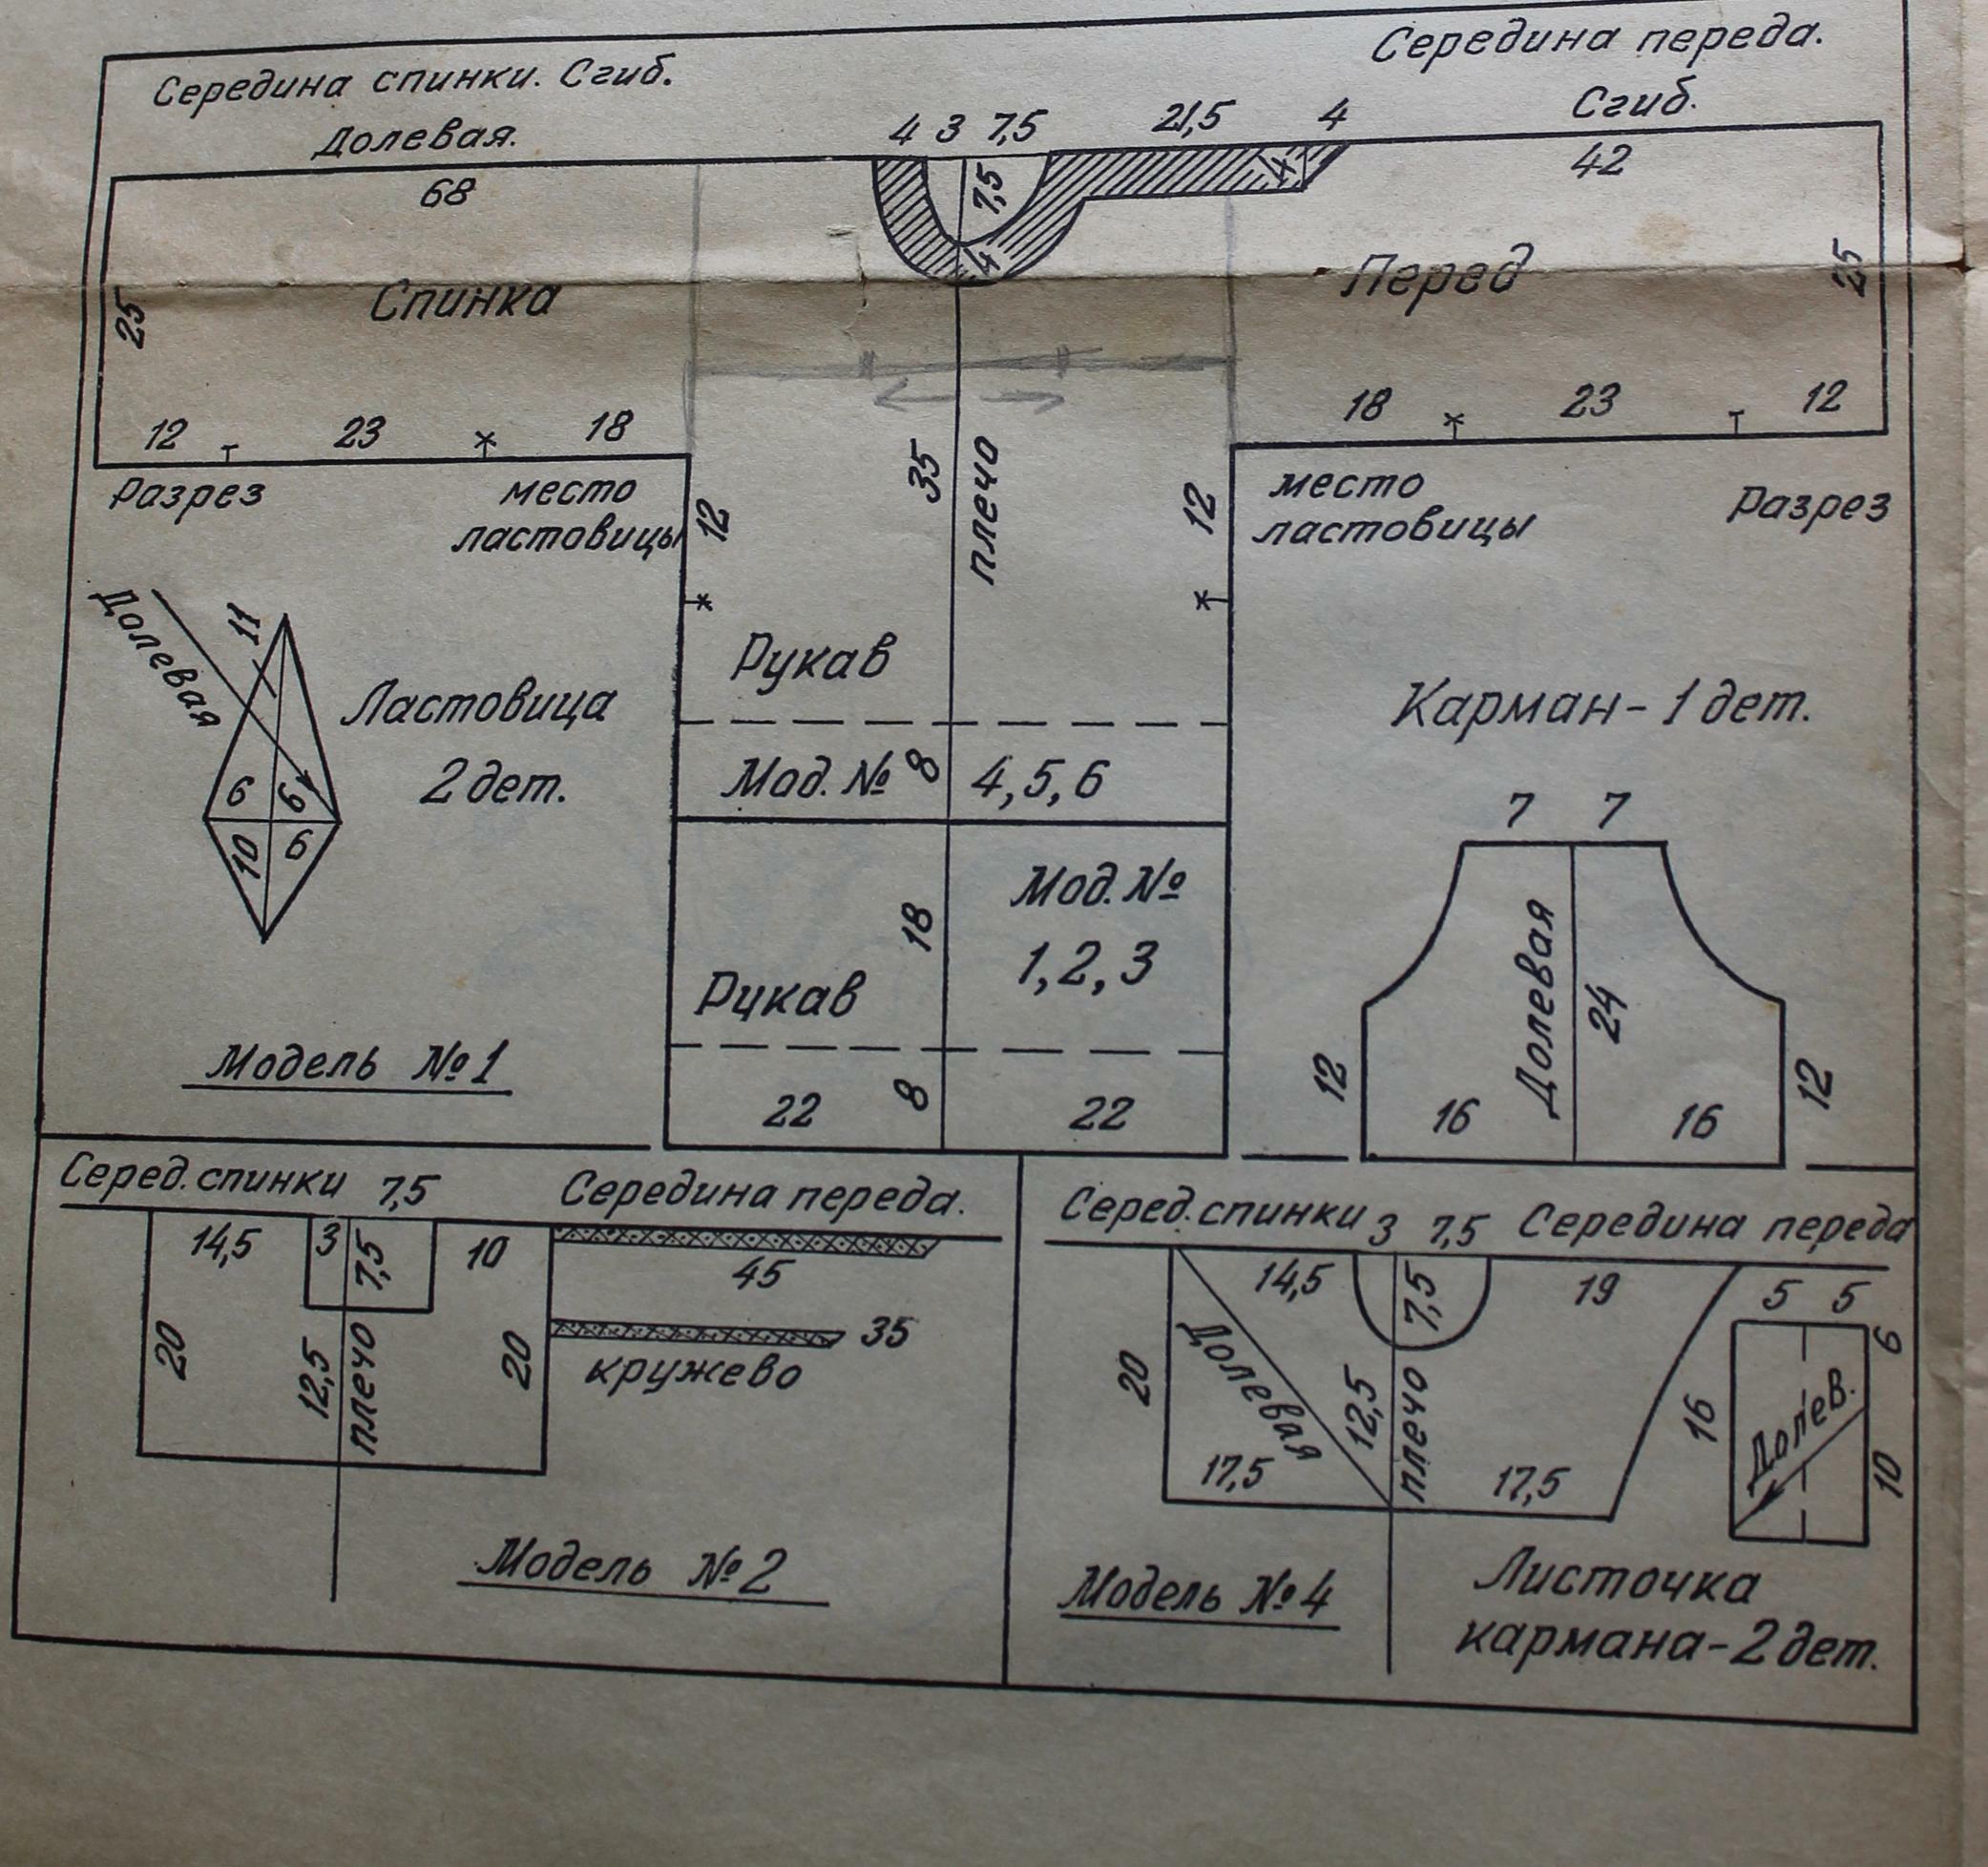 Середина спинки. Сгиб.
Долевая.
Середина переда.
Сгиб.
4 3 7,5 21,5 4
68
7,5
4
4
42
Спинка
Перед
25
25
12 23 18
18 23 12
Разрез
место
ластовицы
12
35
плечо
12
место
ластовицы
Разрез
Долевая
11
6 6
10 6
Ластовица
2 дет.
Рукав
Мод. № 8 4, 5, 6
Рукав
18
Мод. №
1, 2, 3
22 8 22
Карман - 1 дет.
7 7
Долевая
24
12 16 16 12
Модель № 1
Серед. спинки 7,5 Середина переда.
14,5 3 7,5 10
45
35
кружево
20 12,5 плечо 20
Модель № 2
Серед. спинки 3 7,5 Середина переда
14,5 7,5 19
20 Долевая 12,5 плечо
17,5 17,5
5 5
6
16 Долев.
10
Модель № 4
Листочка
кармана - 2 дет.